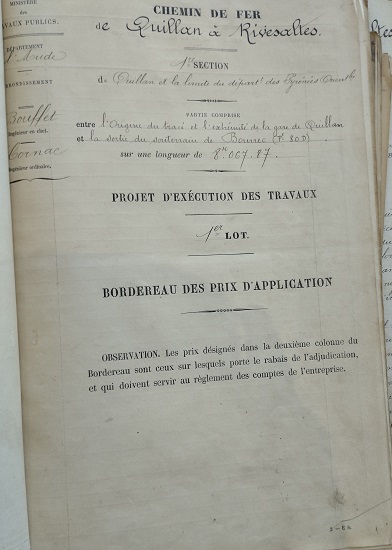 MINISTÈRE
des
TRAVAUX PUBLICS.
DÉPARTEMENT
Aude
Bouffet
Ingénieur en chef.
Cornac
Ingénieur ordinaire.
CHEMIN DE FER
de Quillan à Rivesaltes.
1re SECTION
de Quillan et la limite du départt des Pyrénées Orientles
PARTIE COMPRISE
entre l'Origine du tracé et l'extrémité de la gare de Quillan
et la sortie du souterrain de
sur une longueur de 8k 067.87.
PROJET D'EXÉCUTION DES TRAVAUX
1er LOT.
BORDEREAU DES PRIX D'APPLICATION
OBSERVATION. Les prix désignés dans la deuxième colonne du
Bordereau sont ceux sur lesquels porte le rabais de l'adjudication,
et qui doivent servir au règlement des comptes de l'entreprise.